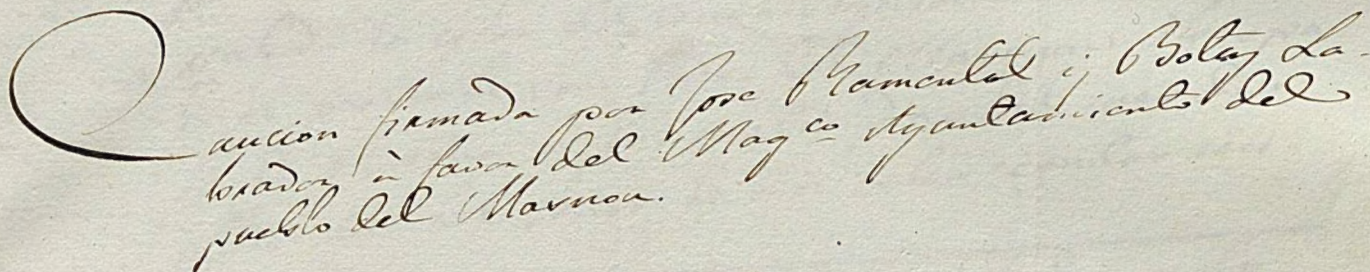 Caucion firmada por Jose Ramentol y Botey La-
brador à favor del Mag.co Ayuntamiento del
pueblo del Masnou.